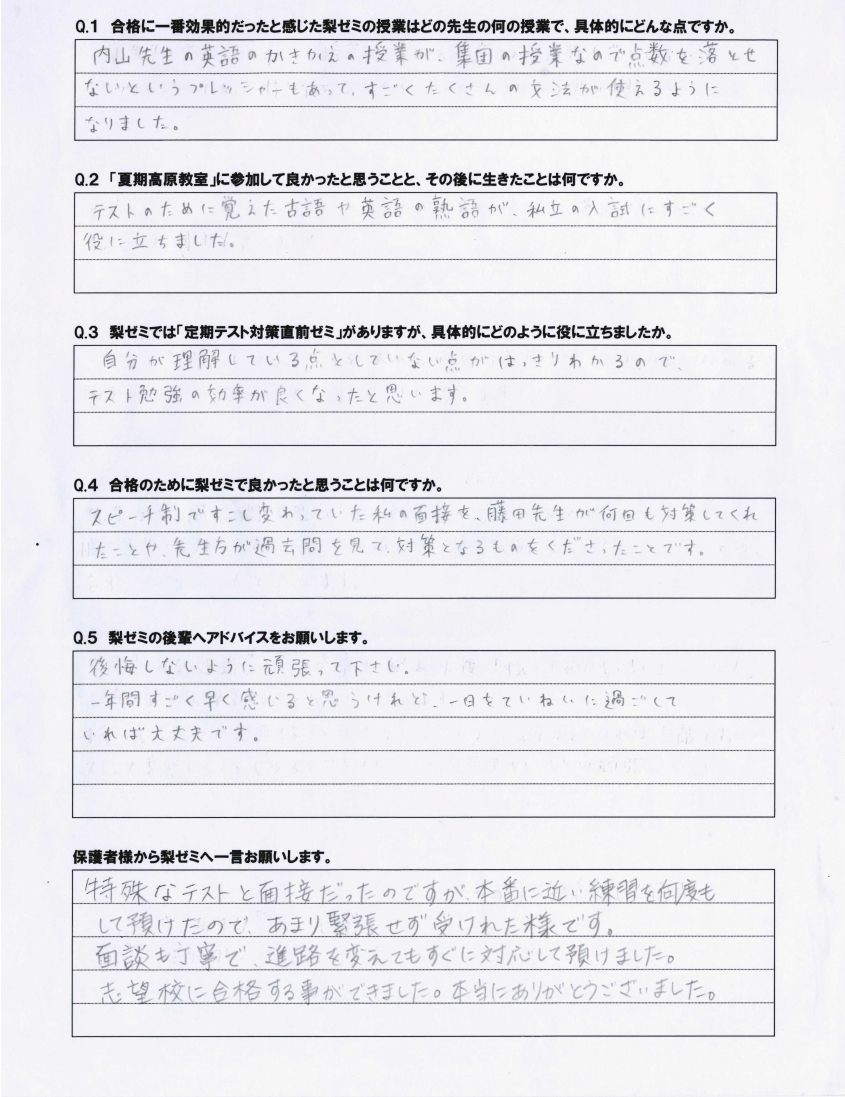 Q.1 合格に一番効果的だったと感じた梨ゼミの授業はどの先生の何の授業で、具体的にどんな点ですか。
内山先生の英語のかきかえの授業が、集団の授業なので点数を落とせ
ないというプレッシャーもあって、すごくたくさんの文法が使えるように
なりました。
Q.2 「夏期高原教室」に参加して良かったと思うことと、その後に生きたことは何ですか。
テストのために覚えた古語や英語の熟語が、私立の入試にすごく
役に立ちました。
Q.3 梨ゼミでは「定期テスト対策直前ゼミ」がありますが、具体的にどのように役に立ちましたか。
自分が理解している点としていない点がはっきりわかるので、
テスト勉強の効率が良くなったと思います。
Q.4 合格のために梨ゼミで良かったと思うことは何ですか。
スピーチ制ですこし変わっていた私の面接を、藤田先生が何回も対策してくれ
たことや、先生方が過去問を見て、対策となるものをくださったことです。
Q.5 梨ゼミの後輩へアドバイスをお願いします。
後悔しないように頑張って下さい。
一年間すごく早く感じると思うけれど、一日をていねいに過ごして
いれば大丈夫です。
保護者様から梨ゼミへ一言お願いします。
特殊なテストと面接だったのですが、本番に近い練習を何度も
して預けたので、あまり緊張せず受けれた様です。
面談も丁寧で、進路を変えてもすぐに対応して預けました。
志望校に合格する事ができました。本当にありがとうございました。